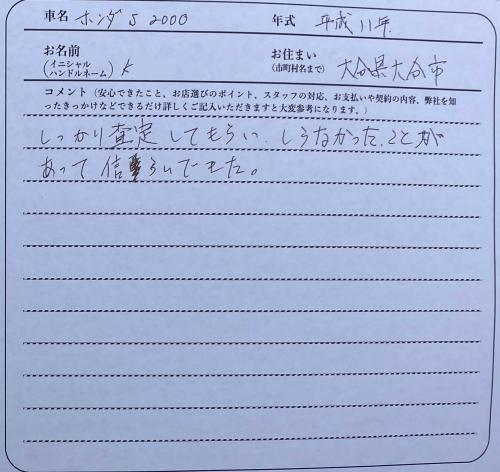 車名 ホンダ S2000 年式 平成 11年
お名前 (イニシャル ハンドルネーム) K お住まい (市町村名まで) 大分県大分市
コメント（安心できたこと、お店選びのポイント、スタッフの対応、お支払いや契約の内容、弊社を知
ったきっかけなどできるだけ詳しくご記入いただきますと大変参考になります。）
しっかり査定してもらい、しらなかった、ことが
あって 信